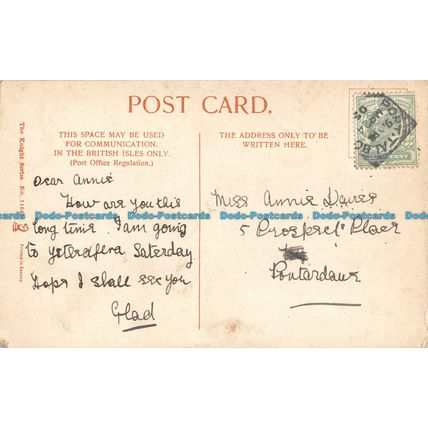 POST CARD.
THIS SPACE MAY BE USED
FOR COMMUNICATION.
IN THE BRITISH ISLES ONLY.
(Post Office Regulation.)
THE ADDRESS ONLY TO BE
WRITTEN HERE.
Dear Annie
How are you this
long time. I am going
to Ystradfera Saterday.
Hope I shall see you
Glad
Miss Annie Davies
5 Prospect Place
Pontardawe
The Knight Series No.
Printed in Saxony
Dodo-Postcards Dodo-Postcards Dodo-Postcards Dodo-Postcards Dodo-Postcards